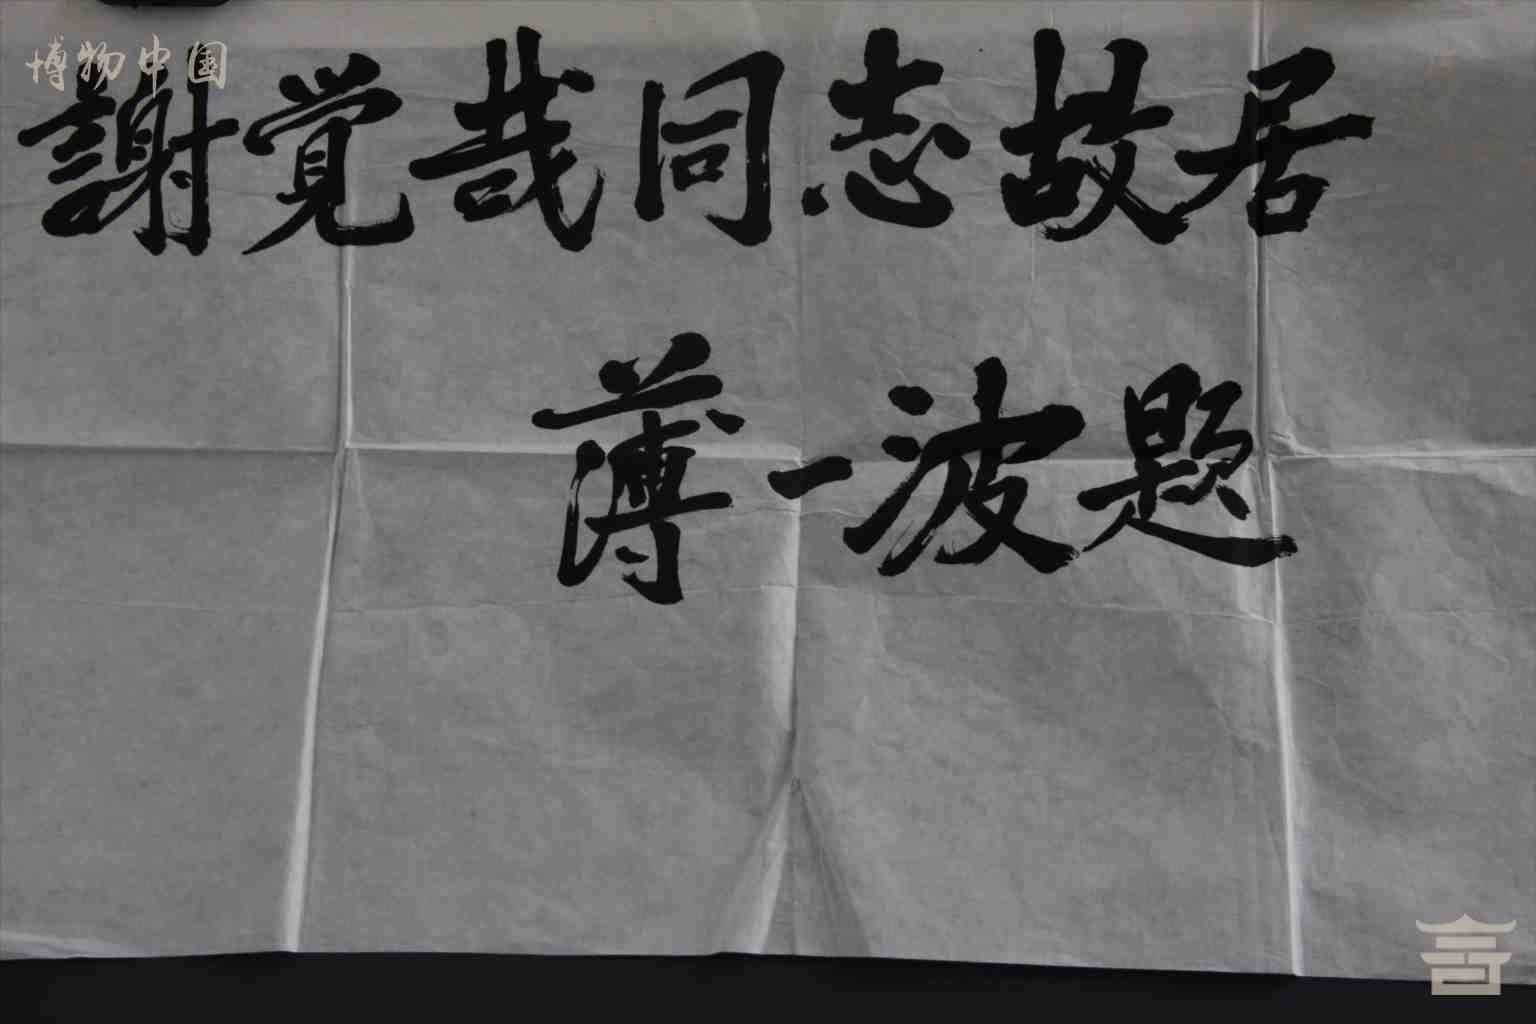 博物中国
謝覚哉同志故居
薄一波题